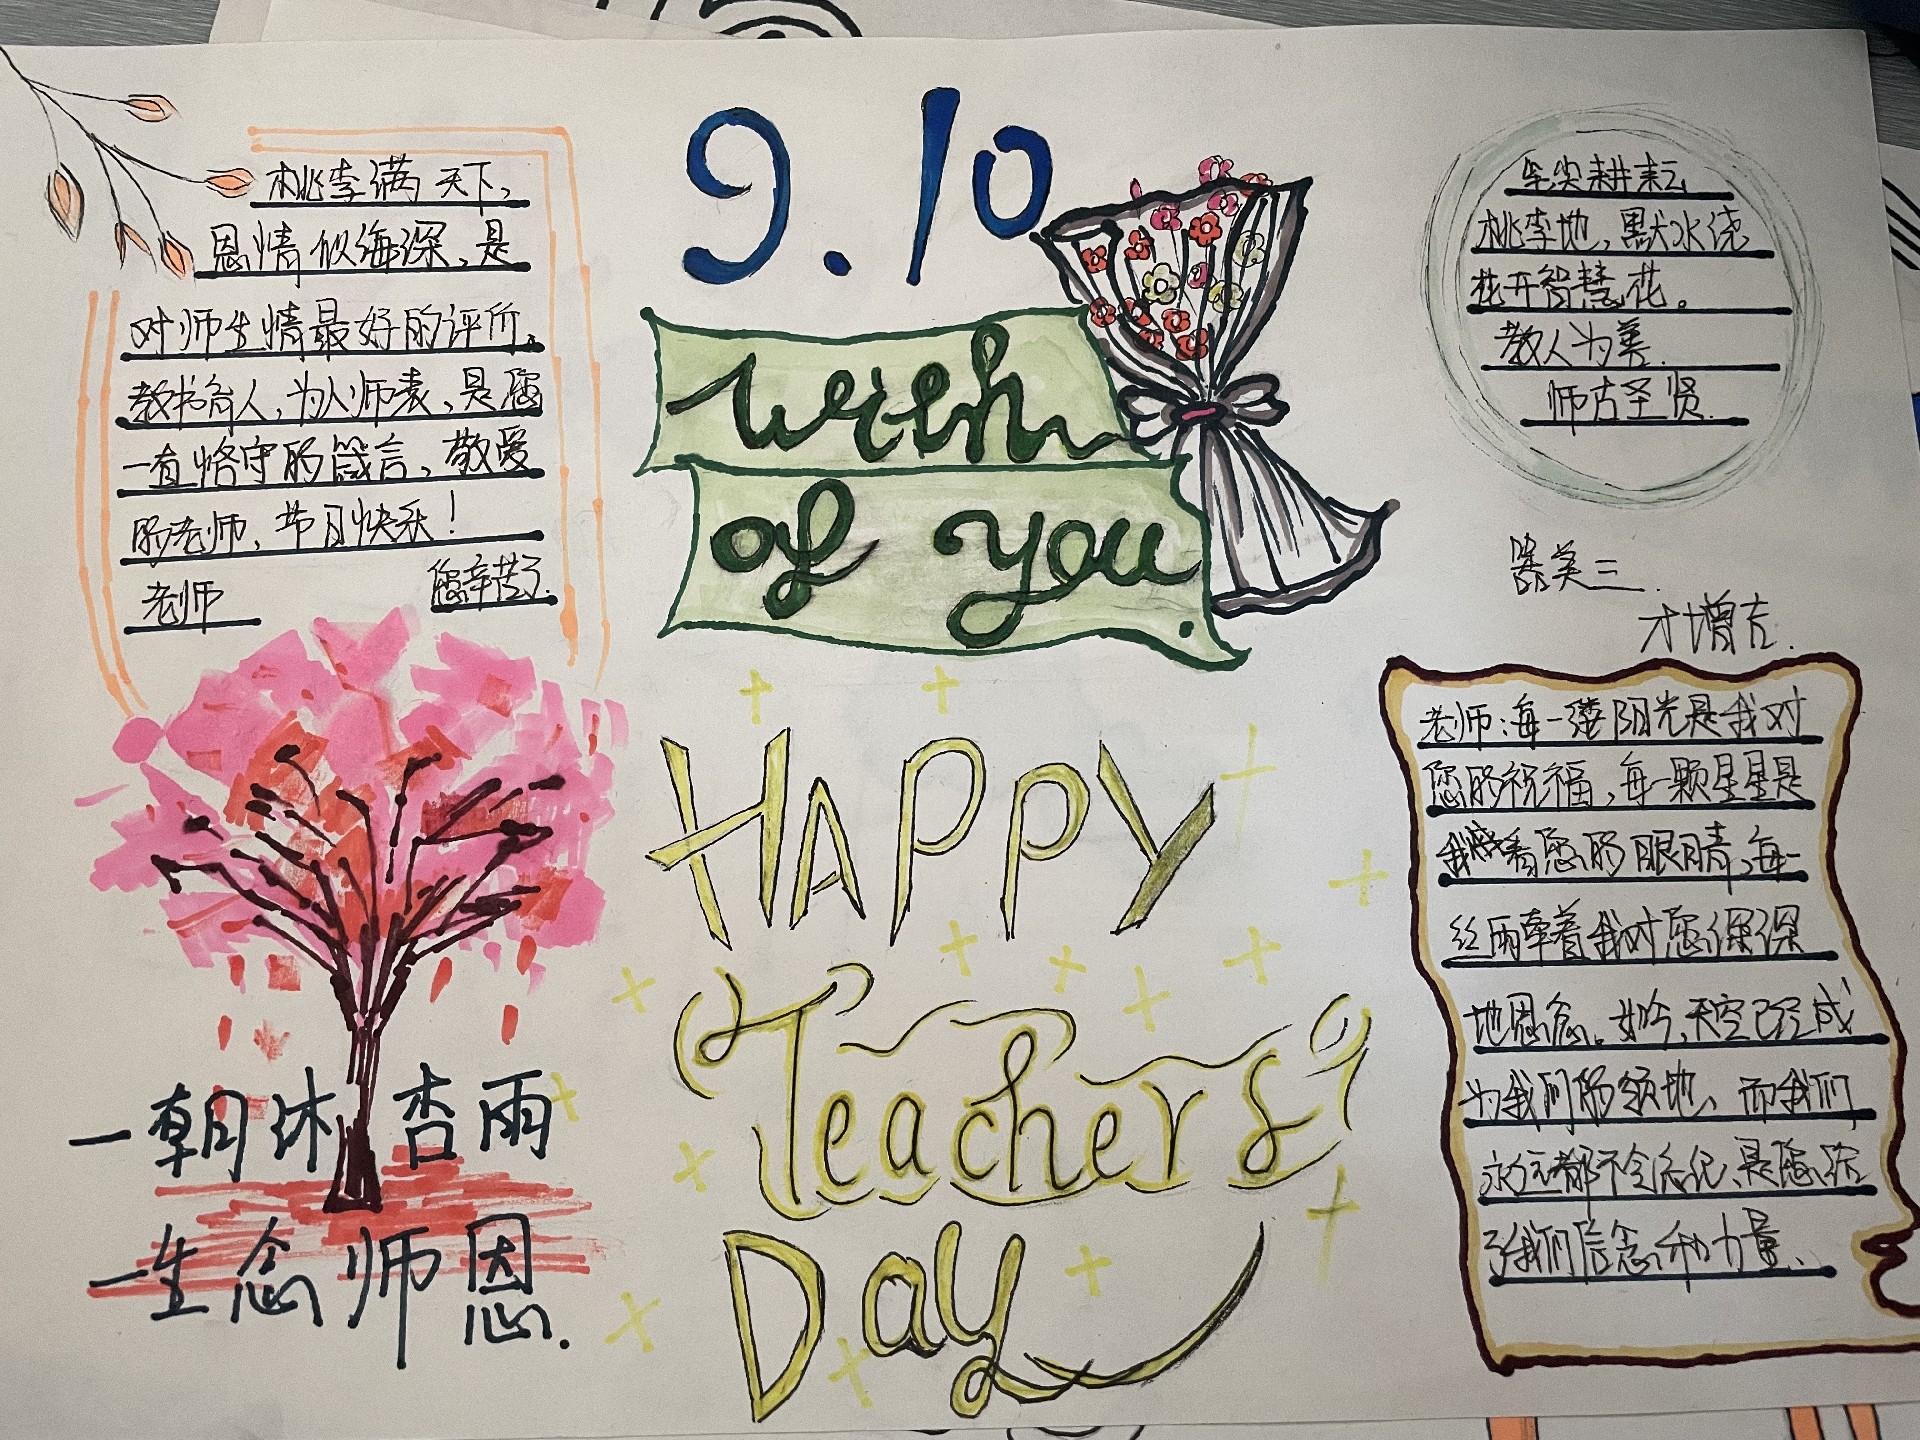 桃李满天下，
恩情似海深，是
对师生情最好的评价。
教书育人，为人师表，是您
一直恪守的箴言，敬爱
的老师，节日快乐！
老师 您辛苦了.
9.10
Wish
of you
HAPPY
Teachers'
Day
一朝沐杏雨
一生念师恩.
笔尖耕耘
桃李地，默水浇
花开智慧花。
教人为善.
师古圣贤.
美三.
才增吉.
老师：每一缕阳光是我对
您的祝福，每一颗星星是
我 着您的眼睛，每一
丝雨牵着我对您深深
地思念。如今，天空已经成
为我们的领地、而我们
永远都不会忘记、是您给
了我们信念和力量、